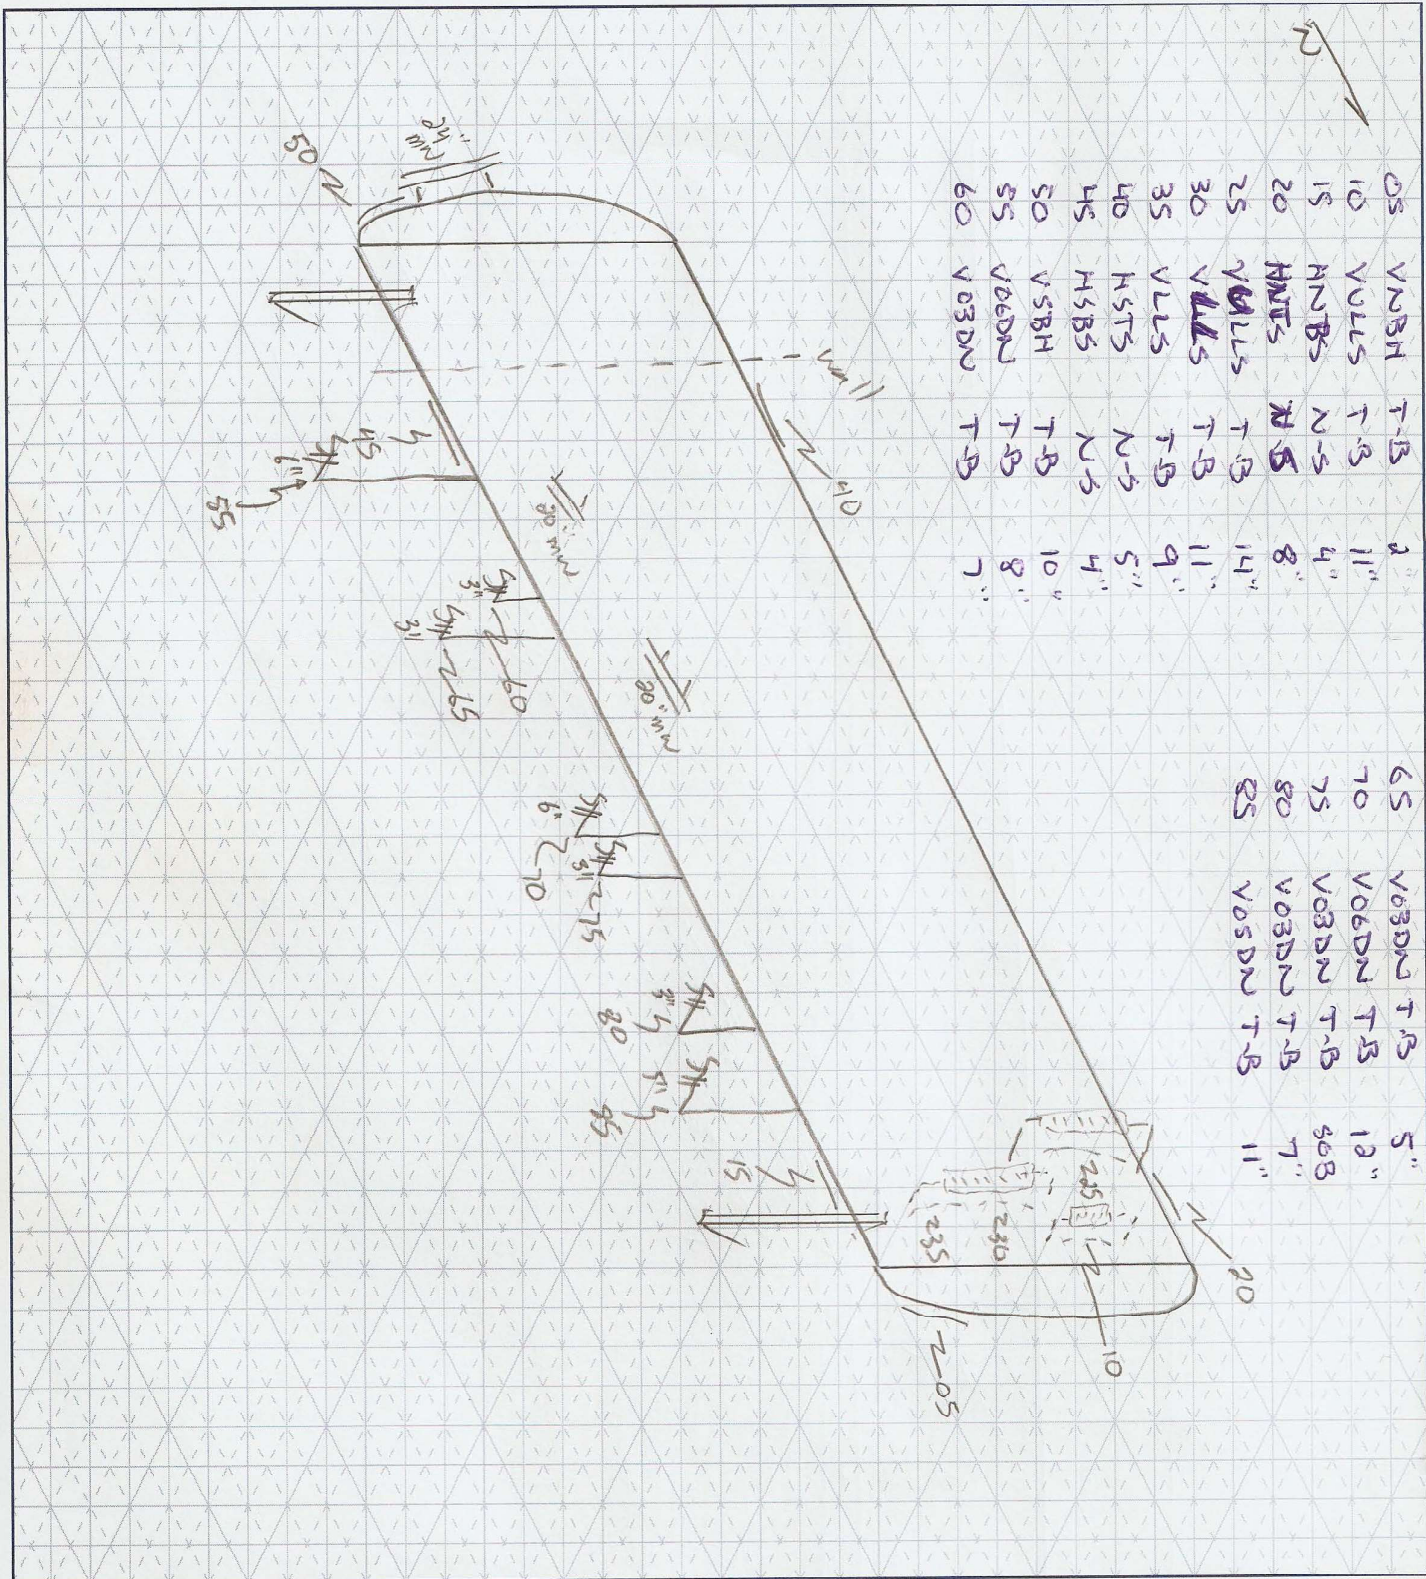 N
05 VNBH T-B 2"
10 VULLS T-B 11"
15 HNBS N-S 4"
20 HNTS N-S 8"
25 VULLS T-B 14"
30 VLLLS T-B 11"
35 VLLS T-B 9"
40 HSTS N-S 5"
45 HSBS N-S 4"
50 VSBH T-B 10"
55 V06DN T-B 8"
60 V03DN T-B 7"
65 V03DN T-B 5"
70 V06DN T-B 12"
75 V03DN T-B SOB
80 V03DN T-B 7"
85 V05DN T-B 11"
24" MW
50
11 MM
40
45
6"
55
20" MW
3"
60
3"
65
20" MW
6"
70
3"
75
3"
80
5"
85
15
225
230
235
20
10
05